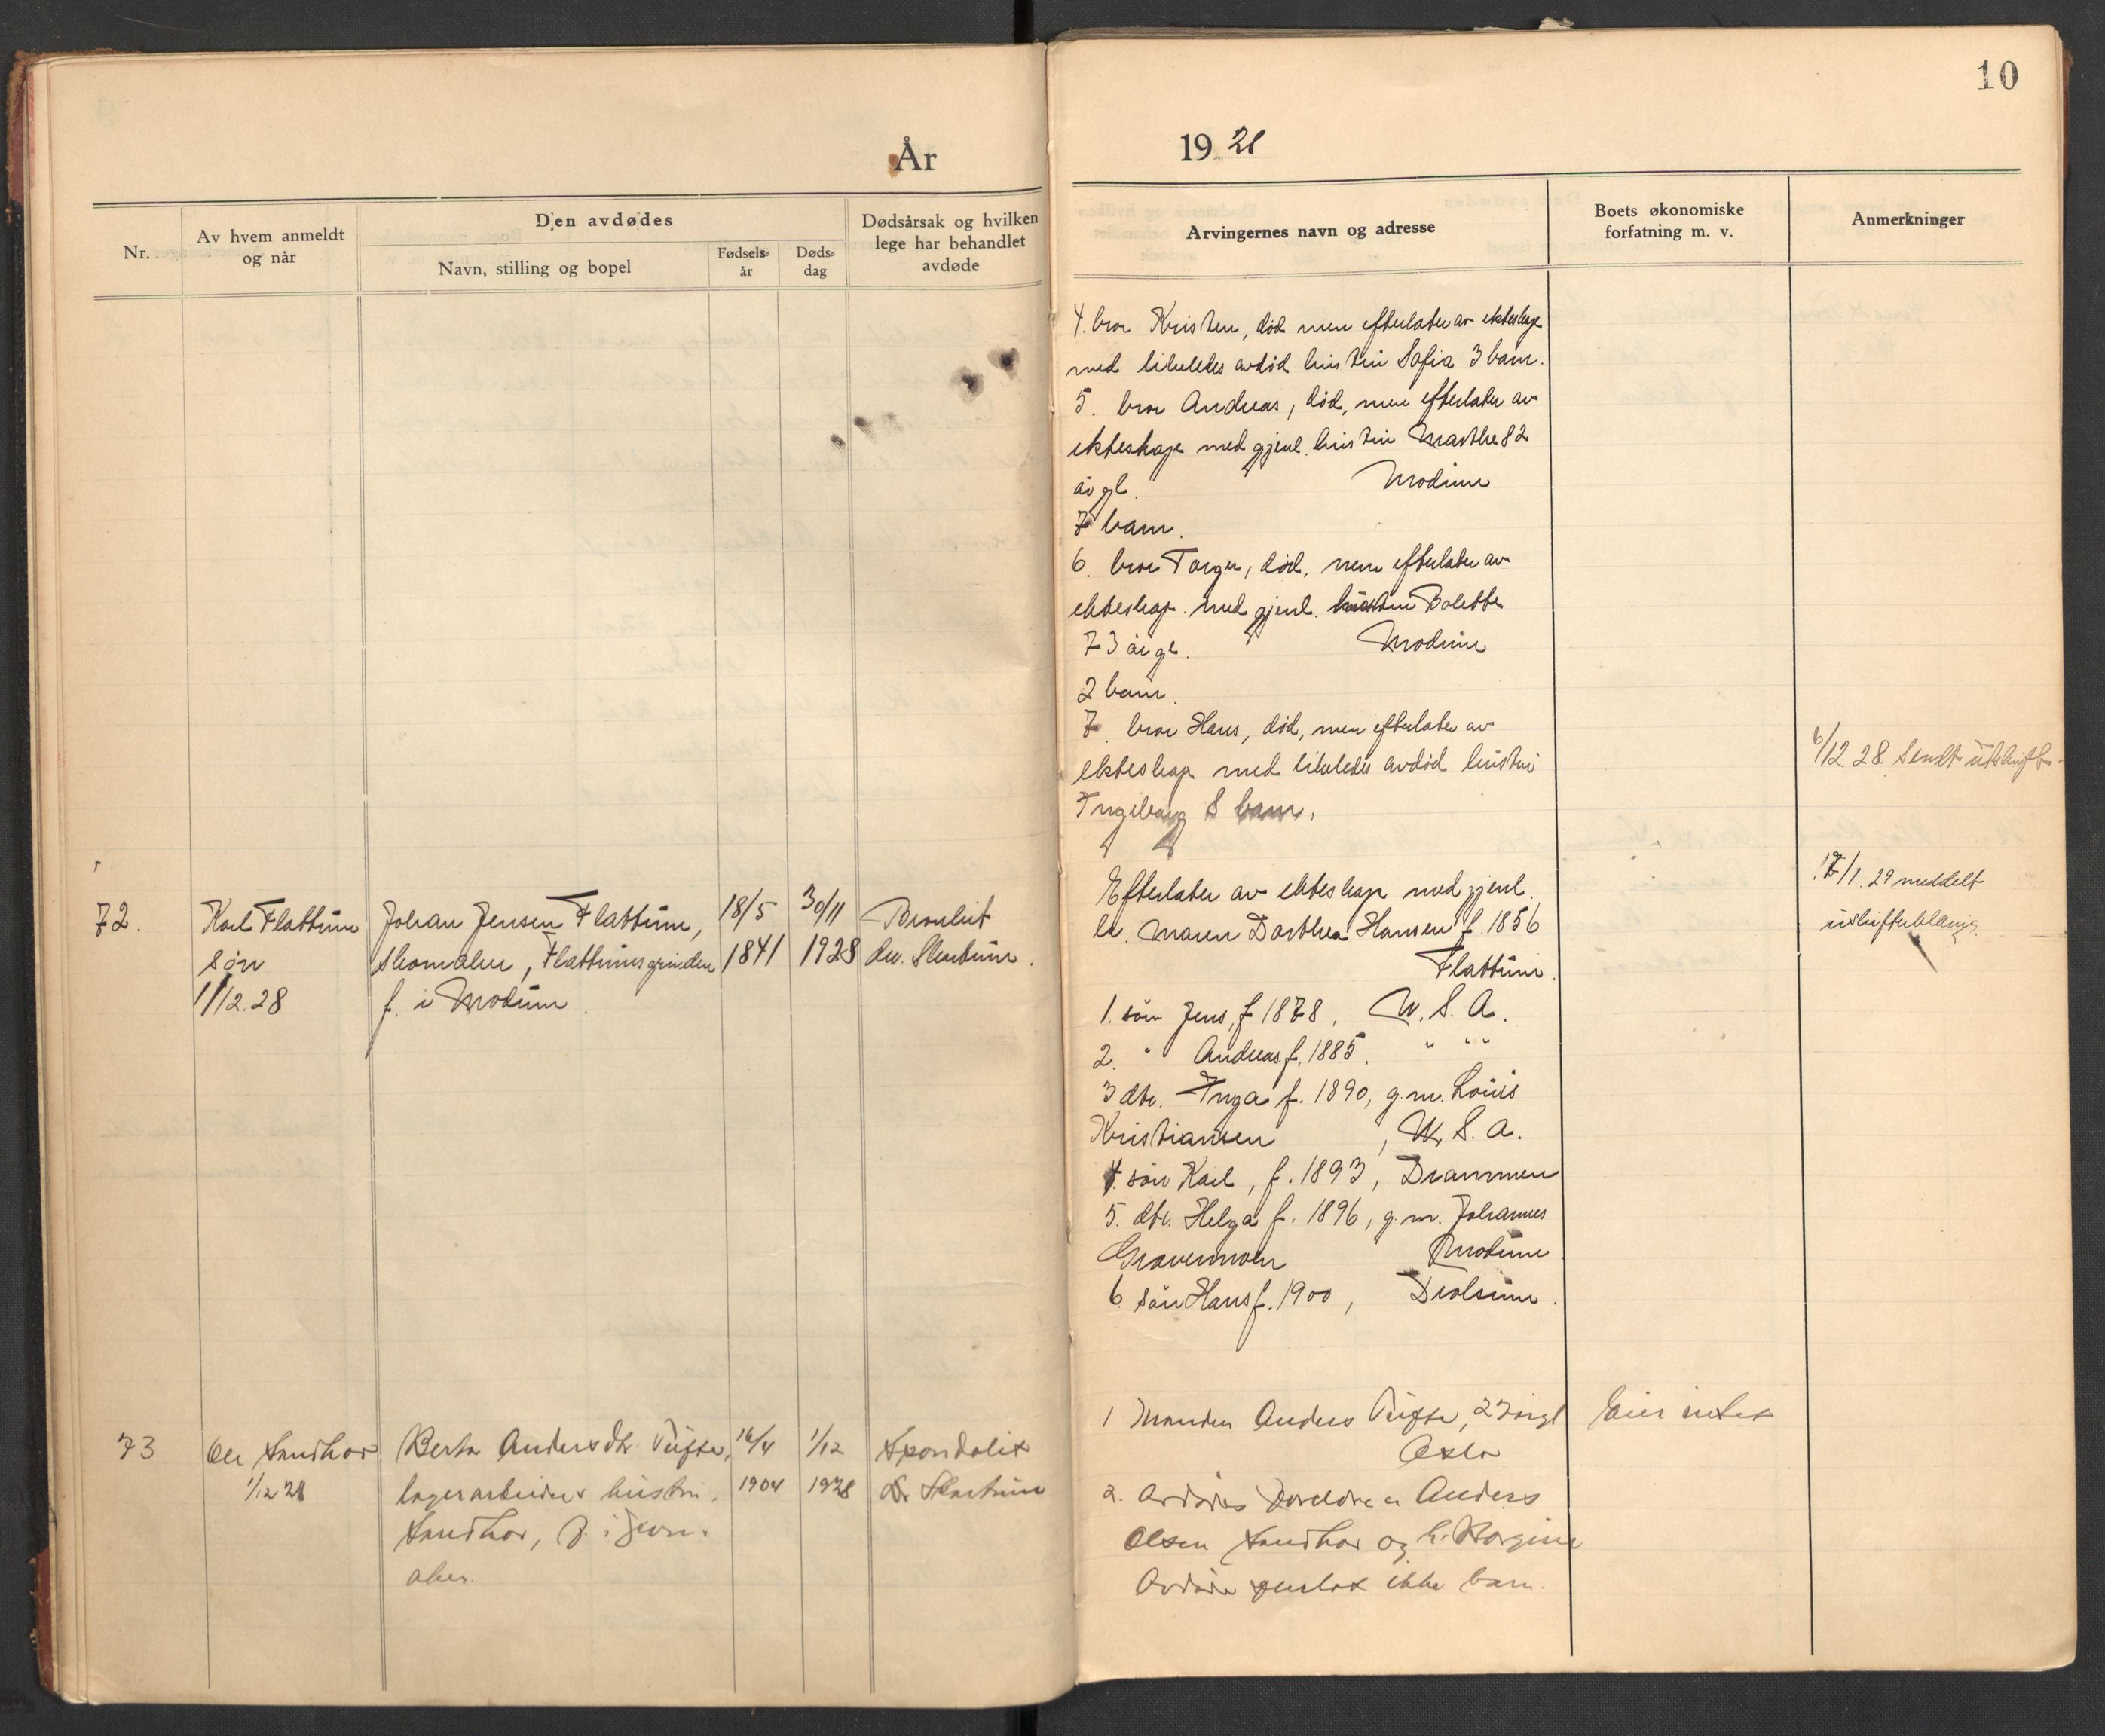 10
År
19 28
Nr.
Av hvem anmeldt
og når
Den avdødes
Navn, stilling og bopel
Fødsels-
år
Døds-
dag
Dødsårsak og hvilken
lege har behandlet
avdøde
Arvingernes navn og adresse
Boets økonomiske
forfatning m. v.
Anmerkninger
4. bror Kristen, død men efterlater av ekteskap
med likeledes avdød hustru Sofia 3 barn.
5. bror Andreas, død, men efterlater av
ekteskap med gjenl. hustru Marthe 82
år gl. Modum
7 barn.
6. bror Torger, død, men efterlater av
ekteskap med gjenl. hustru Bolette
73 år gl. Modum
2 barn.
7. bror Hans, død, men efterlater av
ekteskap med likeledes avdød hustru
Ingeborg 8 barn.
6/12.28. Sendt utskift-
72.
Karl Flattum
søn
1/12.28
Johan Jensen Flattum,
skomaker, Flattumsgrinden
f. i Modum.
18/5
1841
30/11
1928
Bronkit
dr. Skartum.
Efterlater av ekteskap med gjenl.
h. Maren Dorthea Hansen f. 1856
Flattum.
1. søn Jens, f. 1878, U. S. A.
2. " Andreas f. 1885. " " "
3 dtr. Inga f. 1890, g.m. Louis
Kristiansen, U. S. A.
4. søn Karl, f. 1893, Drammen
5. dtr. Helga f. 1896, g.m. Johannes
Gravermoen Modum
6. søn Hans f. 1900, Drolsum.
/1.29 meddelt
73
Ole Sandhor
1/12 28
Berta Andersdtr. Tufte,
lagerarbeiders hustru.
Sandhor, f. i Jevn-
aker.
16/4
1904
1/12
1928
Spondalit
Dr Skartum
1 Manden Anders Tufte, 27 årgl
Oslo
2. Avdødes foreldre er Anders
Olsen Sandhor og h. Borgine
Avdøde efterlot ikke barn.
Eier intet